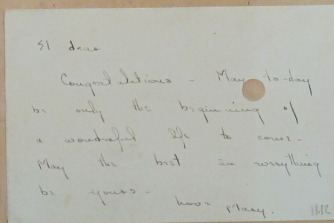 El dear
Congratulations - May to-day
be only the beginning of
a wonderful life to come -
May the best in everything
be yours -
Love Mary.